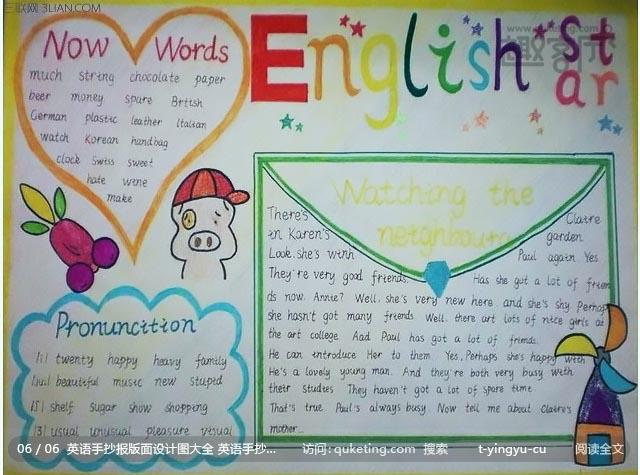 三联网 3LIAN.COM
English Star
Now Words
much string chocolate paper
beer money spare British
German plastic leather Italian
watch Korean handbag
clock Swiss sweet
hate wine
make
Watching the
neighbours
There's Claire
in Karen's garden.
Look, she's with Paul again Yes.
They're very good friends. Has she got a lot of frien
ds now. Annie? Well, she's very new here and she's shy. Perhap
she hasn't got many friends Well. there art lots of nice girls at
the art college. Aad Paul has got a lot of friends.
He can introduce Her to them Yes, Perhaps she's happy with
He's a lovely young man. And they're both very busy with
their studies They haven't got a lot of spare time
That's true. Paul's always busy. Now tell me about Claire's
mother...
Pronuncition
/i/ twenty happy heavy family
/ju:/ beautiful music new stupid
/ʃ/ shelf sugar show shopping
/ʒ/ usual unusual pleasure visual
06 / 06 英语手抄报版面设计图大全 英语手抄... 访问: quketing.com 搜索 t-yingyu-cu 阅读全文